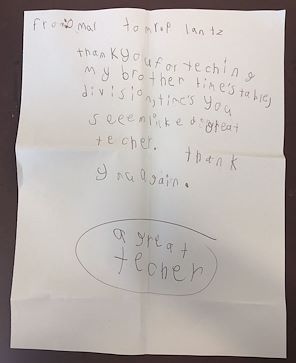 from mal to mrop lantz
thankyou for teching
my brother time's tables
division time's you
seeem like a great
techer. thank
you again.
a great
techer